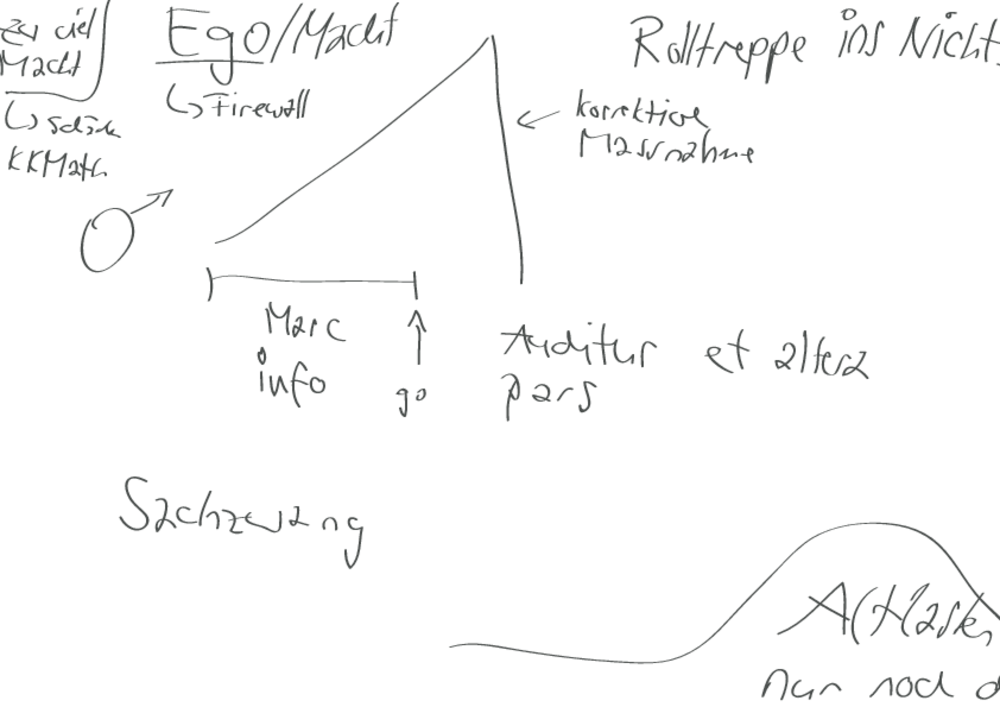 zu viel
Macht
KKMath
Ego/Macht
Firewall
Rolltreppe ins Nichts
korrektive
Massnahme
Marc
info
go
Auditur et altera
pars
Sachzwang
nur noch